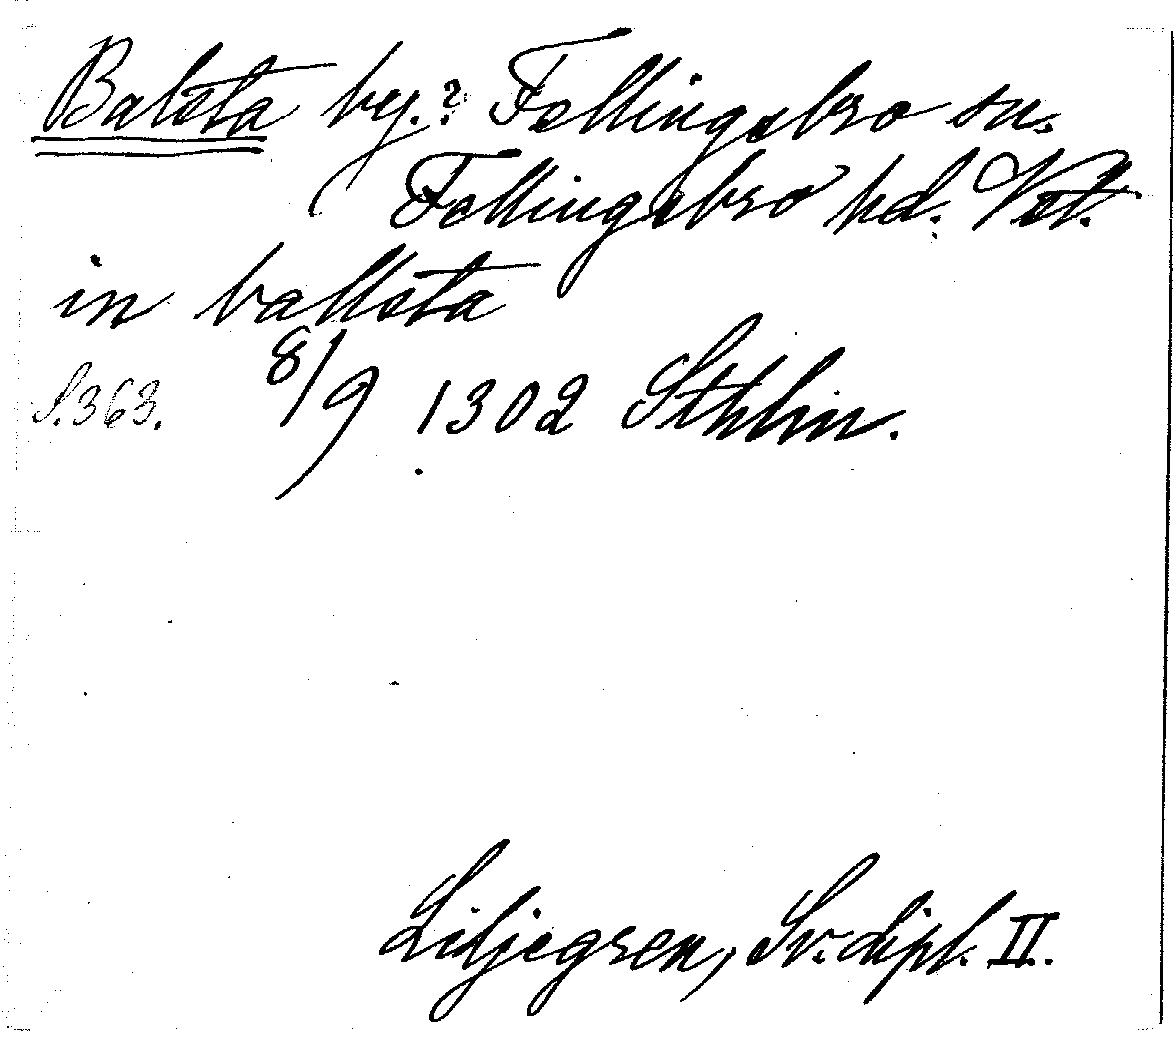 Balsta by.? Fellingsbro sn.
Fellingsbro hd. Vstl.
in ballsta
S.363. 8/9 1302 Sthlm.
Liljegren, Sv. dipl. II.